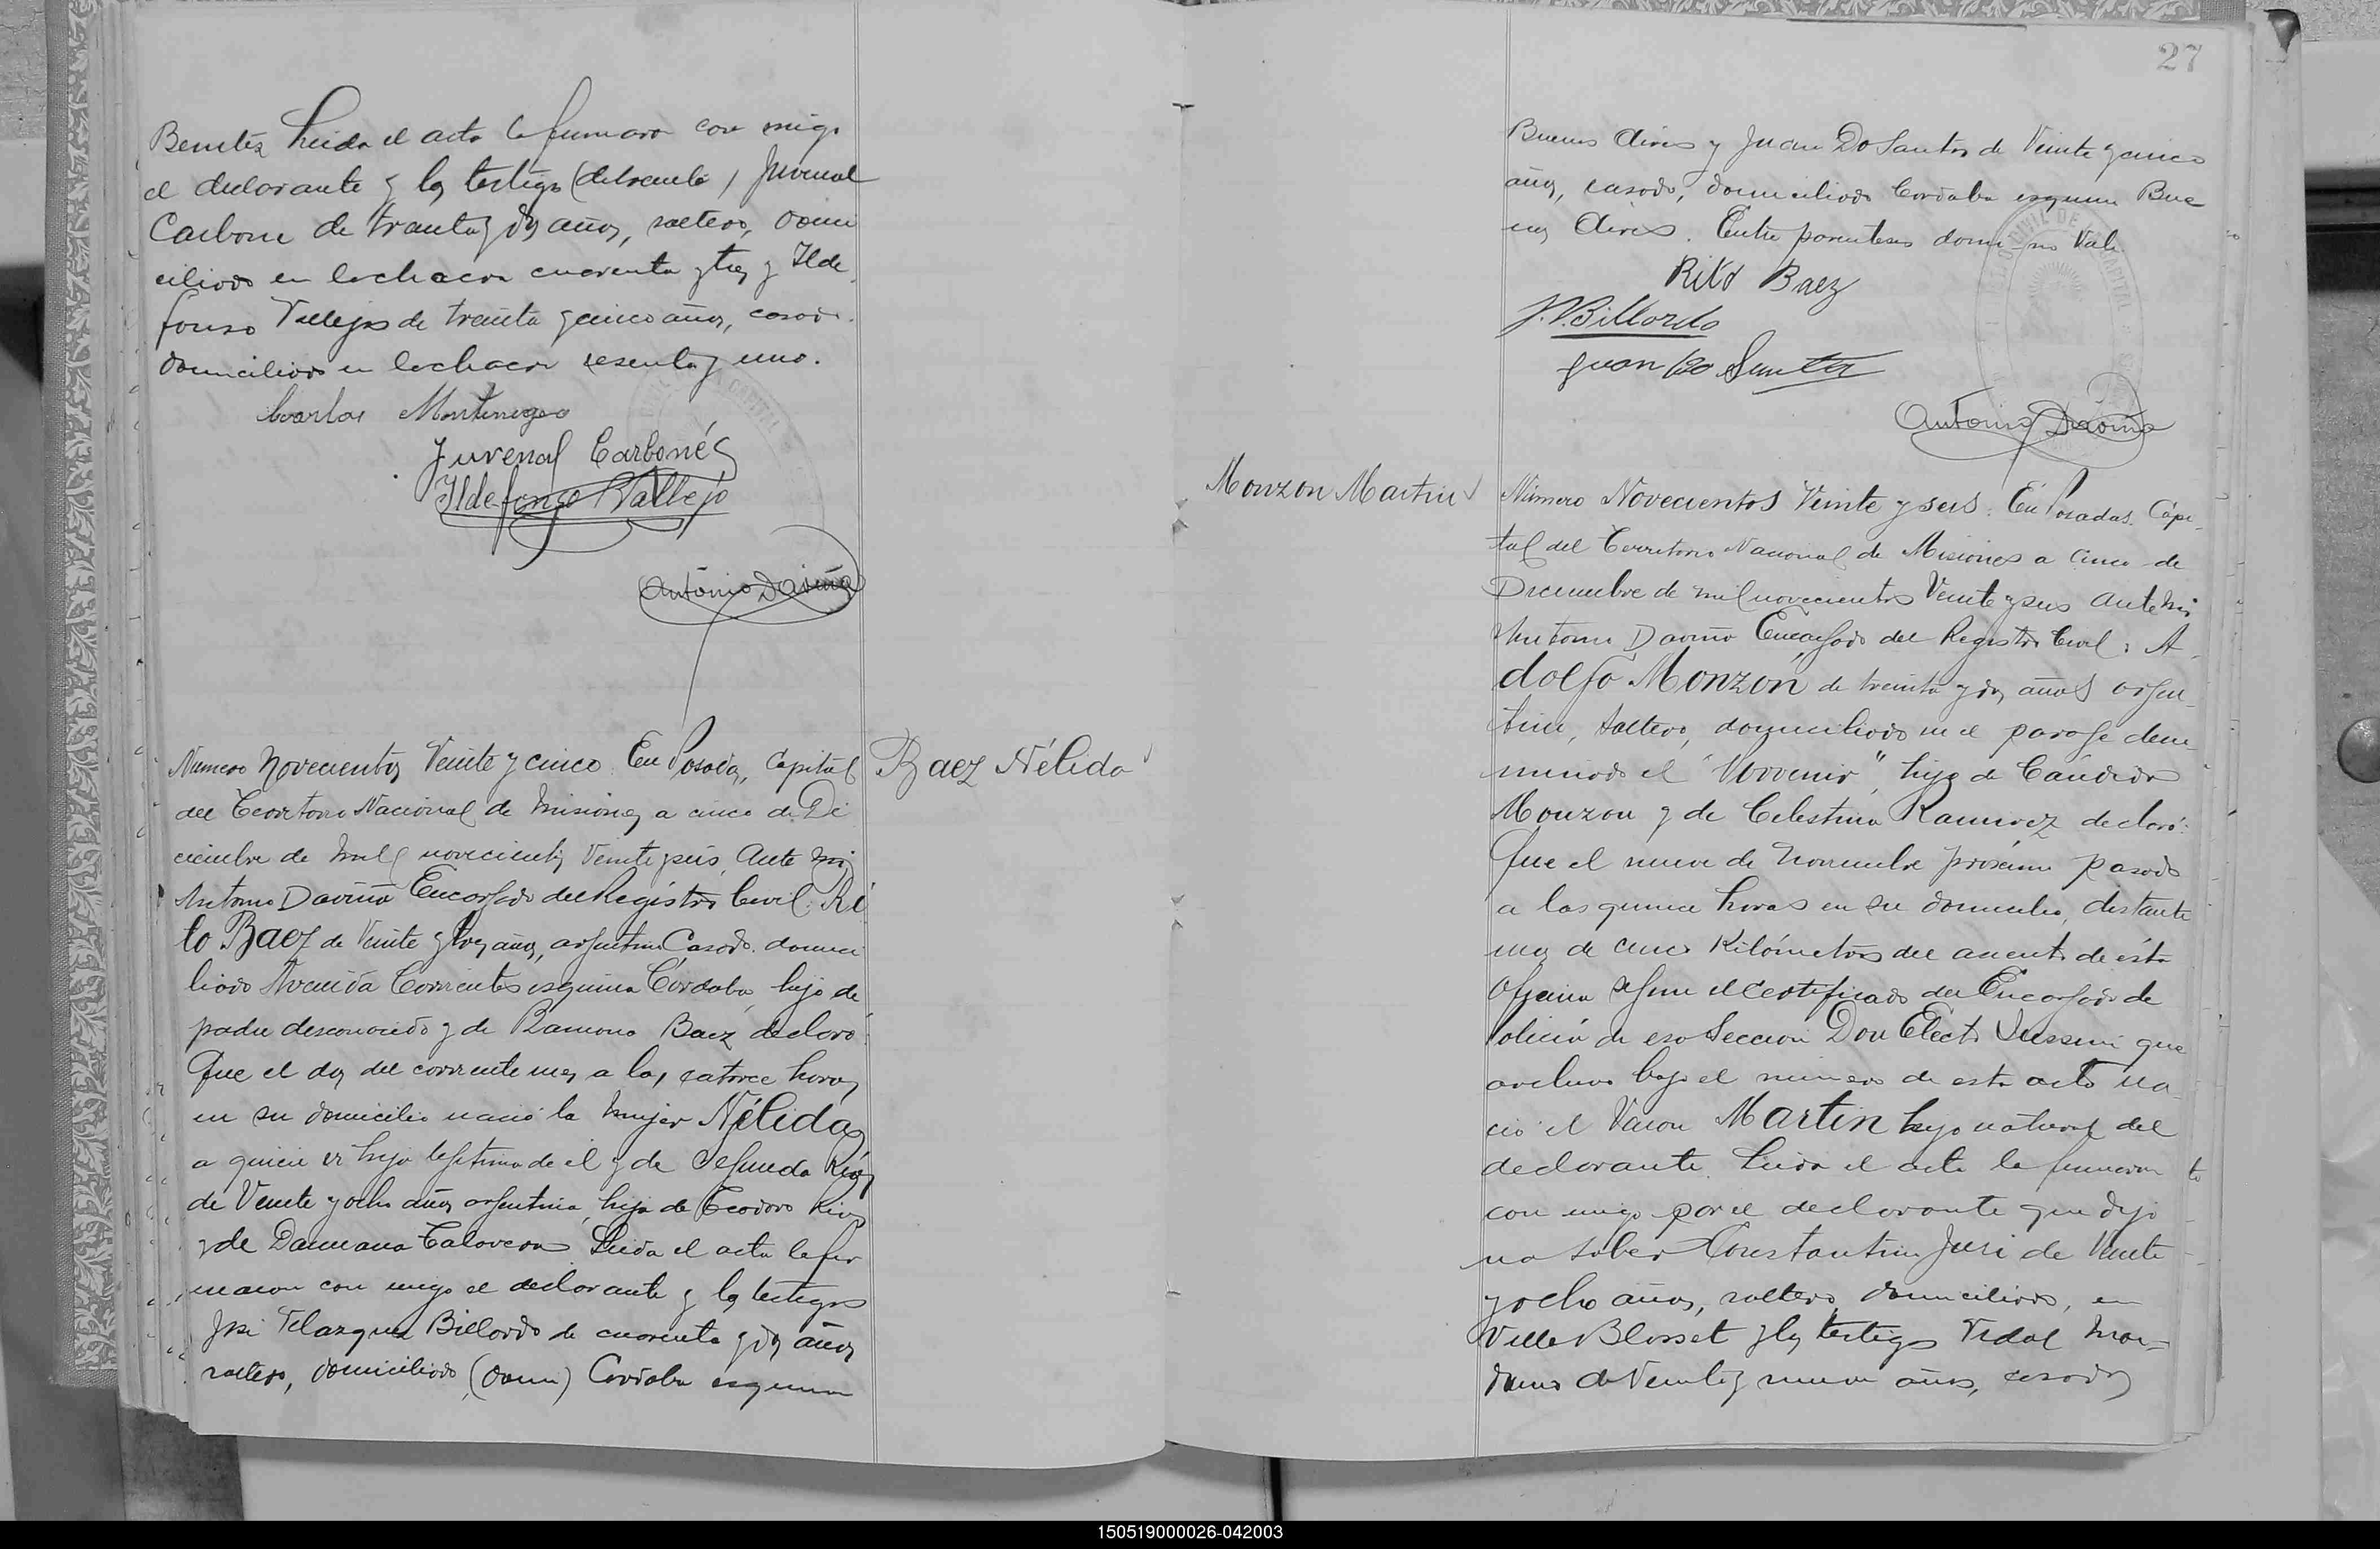 Benitez Leida el acta la firmaron con migo
el declarante y los testigos (detraenta) Juvenal
Carbone de treinta y dos años, soltero, domi
ciliado en la chacra cuarenta y tres y Ilde
fonso Vallejos de treinta y cinco años, casado
domiciliado en la chacra sesenta y uno.
Carlos Montenegro
Juvenal Carbonés
Ildefonso Vallejo
Antonio Daviña
Numero Novecientos Veinte y cinco. En Posadas, Capital
Baez Nélida
del Territorio Nacional de Misiones a cinco de Di
ciembre de mil novecientos Veinte y seis, Ante mi
Antonio Daviña Encargado del Registro Civil: Ri
to Baez de Veinte y tres años, argentino Casado. domici
liado Avenida Corrientes esquina Córdoba, hijo de
padre desconocido y de Ramona Baez, declaró:
Que el dos del corriente mes a las catorce horas
en su domicilio nació la mujer Nélida
a quien es hija lejitima de el y de Segunda Rios
de Veinte y ocho años argentina, hija de Teodoro Rios
y de Damiana Talavera Leida el acta la fir
maron con migo el declarante y los testigos
José Velazquez Billordo de cuarenta y dos años
soltero, domiciliado (domi) Cordoba esquina
27
Buenos Aires y Juan Do Santos de Veinte y cinco
años, casado, domiciliado Cordoba esquina Bue
nos Aires. Entre parentesis domi no Vale
Rito Baez
J.V. Billordo
Juan Do Santos
Antonio Daviña
Monzon Martin
Número Novecientos Veinte y seis. En Posadas. Capi-
tal del Territorio Nacional de Misiones a cinco de
Diciembre de mil novecientos Veinte y seis Ante mi
Antonio Daviña Encargado del Registro Civil: A-
dolfo Monzón de treinta y dos años argen-
tino, soltero, domiciliado en el paraje deno
minado el "Porvenir", hijo de Cándido
Monzon y de Celestina Ramirez declaró:
Que el nueve de Noviembre próximo pasado
a las quince horas en su domicilio, distante
mas de cinco Kilómetros del asiento de ésta
Oficina según el certificado del Encargado de
Policia de esa Seccion Don Electo que
archivo bajo el número de esta acta na-
ció el Varon Martin hijo natural del
declarante. Leida el acta la firmaron
con migo por el declarante que dijo
no saber Constantino Juri de Veinte
y ocho años, soltero, domiciliado, en
Villa Blosset y los testigos Vidal
de Veinte y nueve años, casado